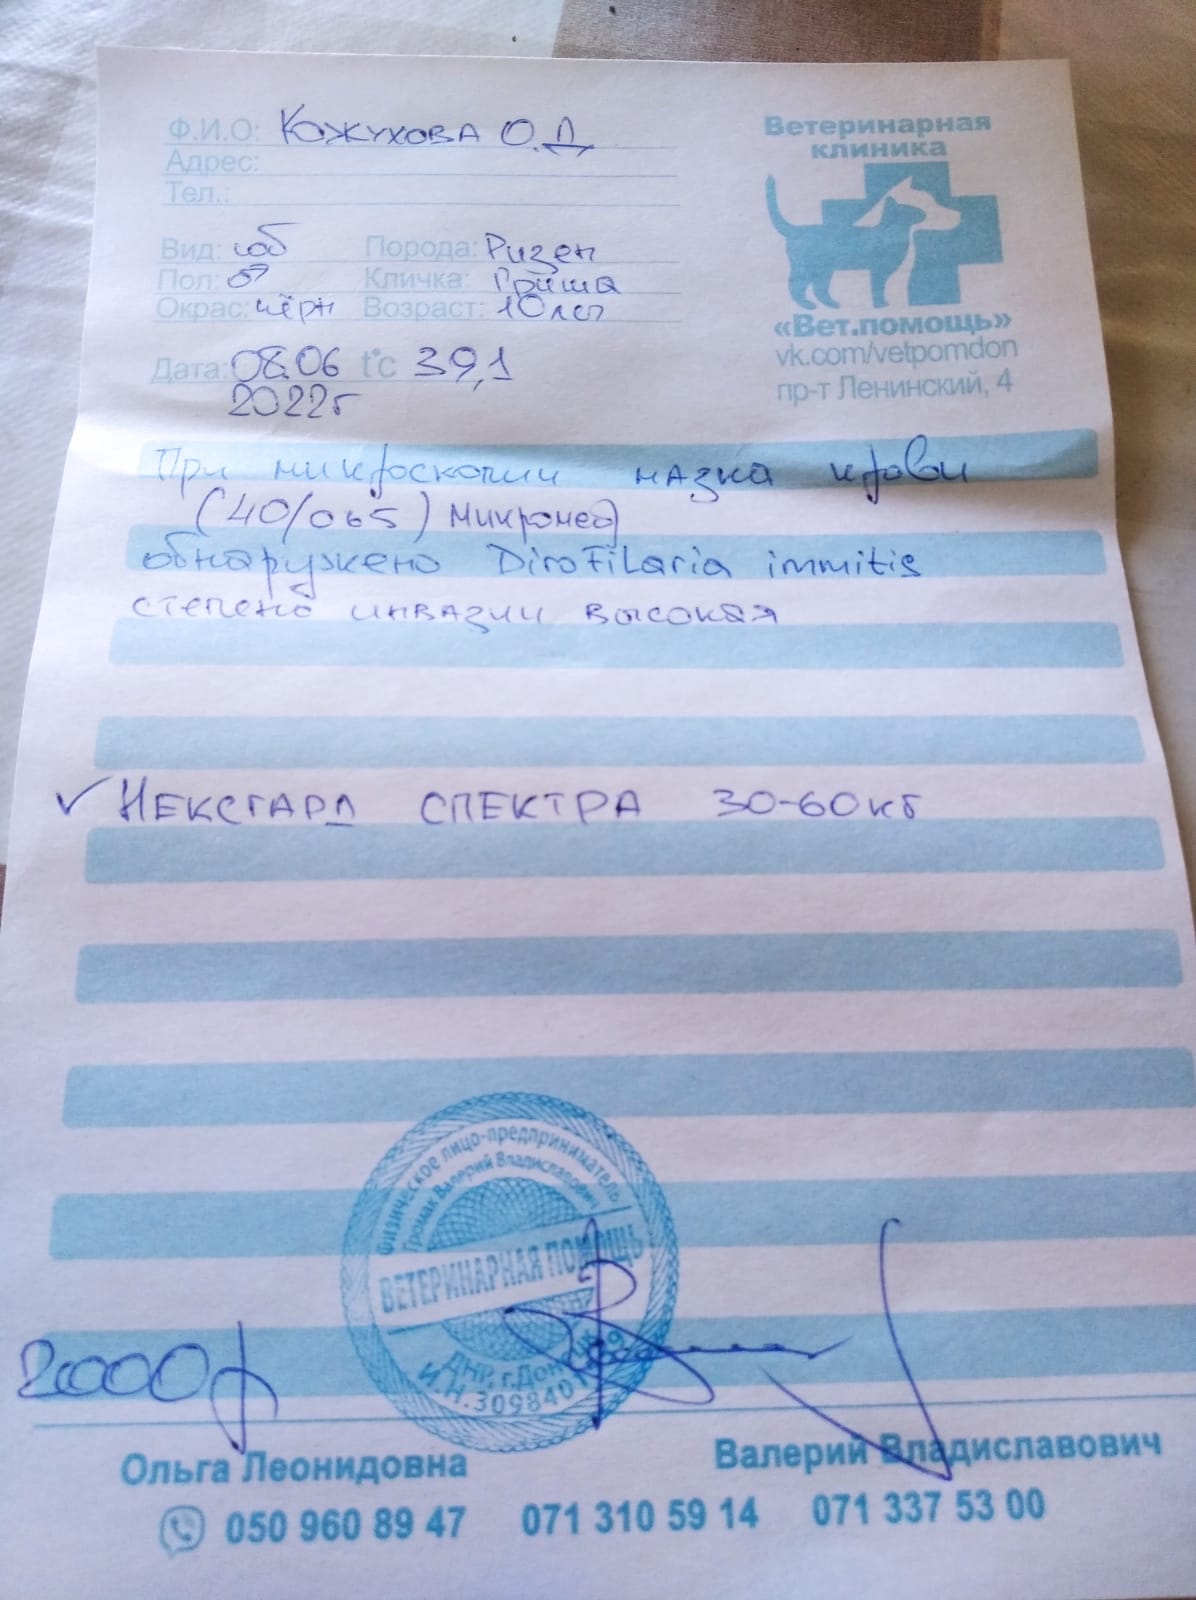 Ф.И.О: Кожухова О.Д
Адрес:
Тел.:
Вид: соб Порода: Ризен
Пол: ♂ Кличка: Гриша
Окрас: чёрн Возраст: 10 лет
Дата: 08.06 t°c 39,1
2022г
Ветеринарная
клиника
«Вет.помощь»
vk.com/vetpomdon
пр-т Ленинский, 4
При микроскопии мазка крови
(40/065) Микромед
обнаружено Dirofilaria immitis
степень инвазии высокая
✓ Нексгард спектра 30-60кг
Физическое лицо-предприниматель
Громак Валерий Владиславович
ВЕТЕРИНАРНАЯ ПОМОЩЬ
ДНР, г.Донецк
И.Н.
2000р
Ольга Леонидовна Валерий Владиславович
050 960 89 47 071 310 59 14 071 337 53 00